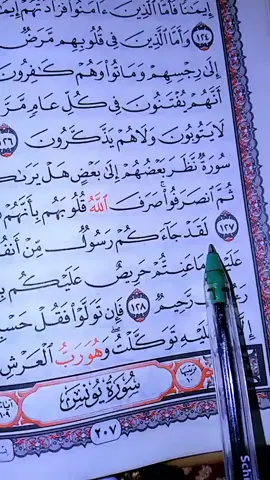 إِيمَٰنًا فَأَمَّا الَّذِينَ ءَامَنُوا فَزَادَتْهُمْ
١٢٤ وَأَمَّا الَّذِينَ فِي قُلُوبِهِم مَّرَضٌ
إِلَىٰ رِجْسِهِمْ وَمَاتُوا وَهُمْ كَٰفِرُونَ
أَنَّهُمْ يُفْتَنُونَ فِي كُلِّ عَامٍ
لَا يَتُوبُونَ وَلَا هُمْ يَذَّكَّرُونَ ١٢٦
سُورَةٌ نَّظَرَ بَعْضُهُمْ إِلَىٰ بَعْضٍ هَلْ
ثُمَّ انصَرَفُوا صَرَفَ اللَّهُ قُلُوبَهُم بِأَنَّهُمْ
١٢٧ لَقَدْ جَاءَكُمْ رَسُولٌ مِّنْ
عَلَيْهِ مَا عَنِتُّمْ حَرِيصٌ عَلَيْكُم
رَّحِيمٌ ١٢٨ فَإِن تَوَلَّوْا فَقُلْ
عَلَيْهِ تَوَكَّلْتُ وَهُوَ رَبُّ الْعَرْشِ
سُورَةُ يُونُسَ
٢٠٧